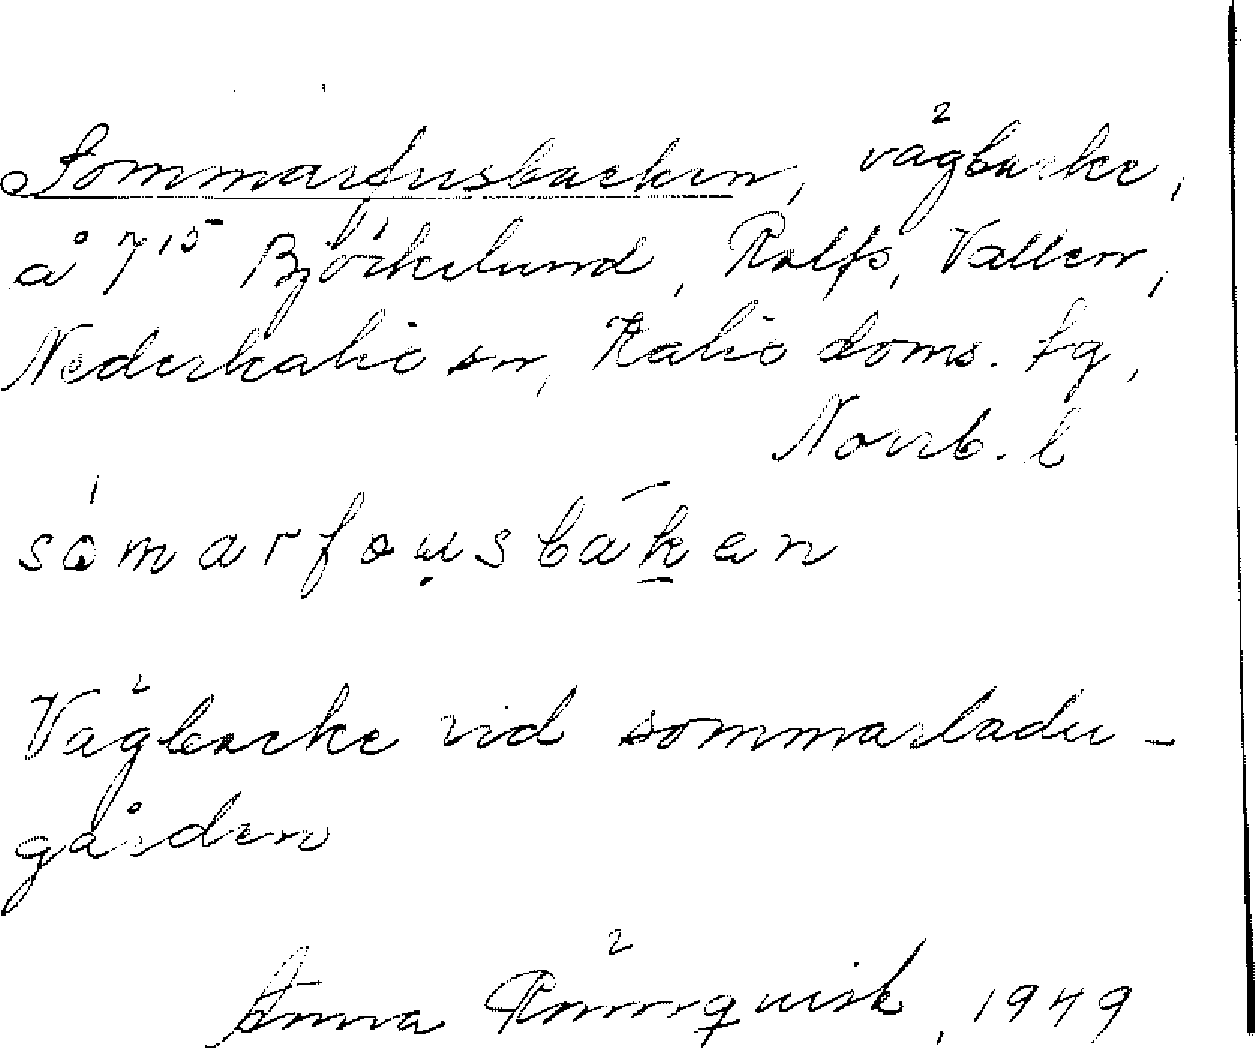 Sommarfusbacken, vägbacke,
å 7¹⁵ Björkelund, Rolfs, Vallen,
Nederkalix sn, Kalix doms. tg,
Norrb. l
såmarfowsbákan
Vägbacke vid sommarladu-
gården
Anna Rönnquist, 1949